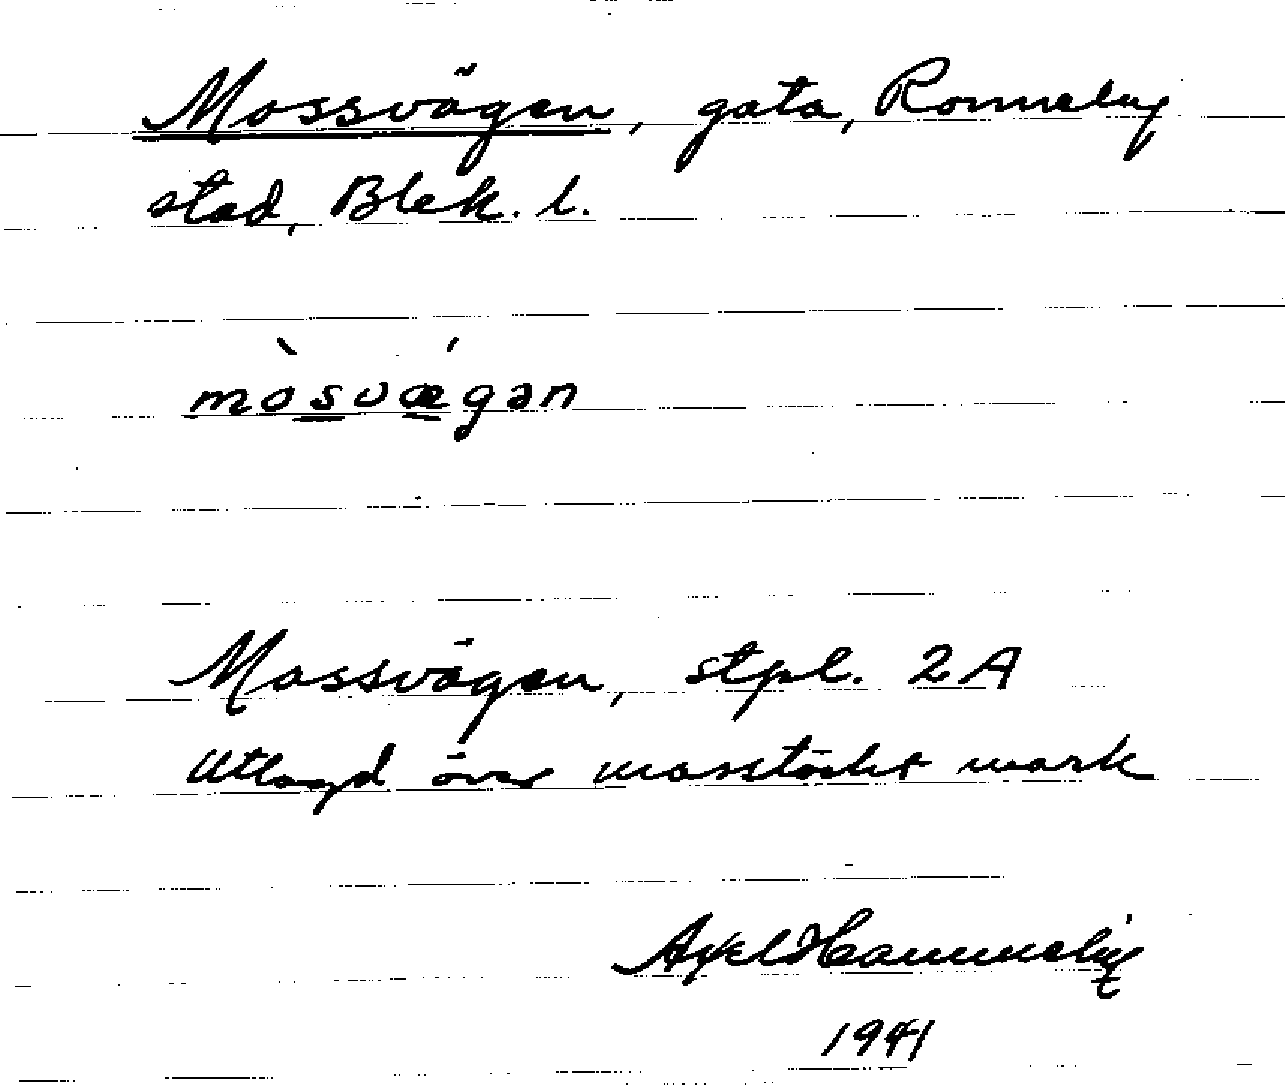 Mossvägen, gata, Ronneby
stad, Blek. l.
mòsvǽgən
Mossvägen, stpl. 2A
Utlagd över mosstäckt mark
Axel
1941